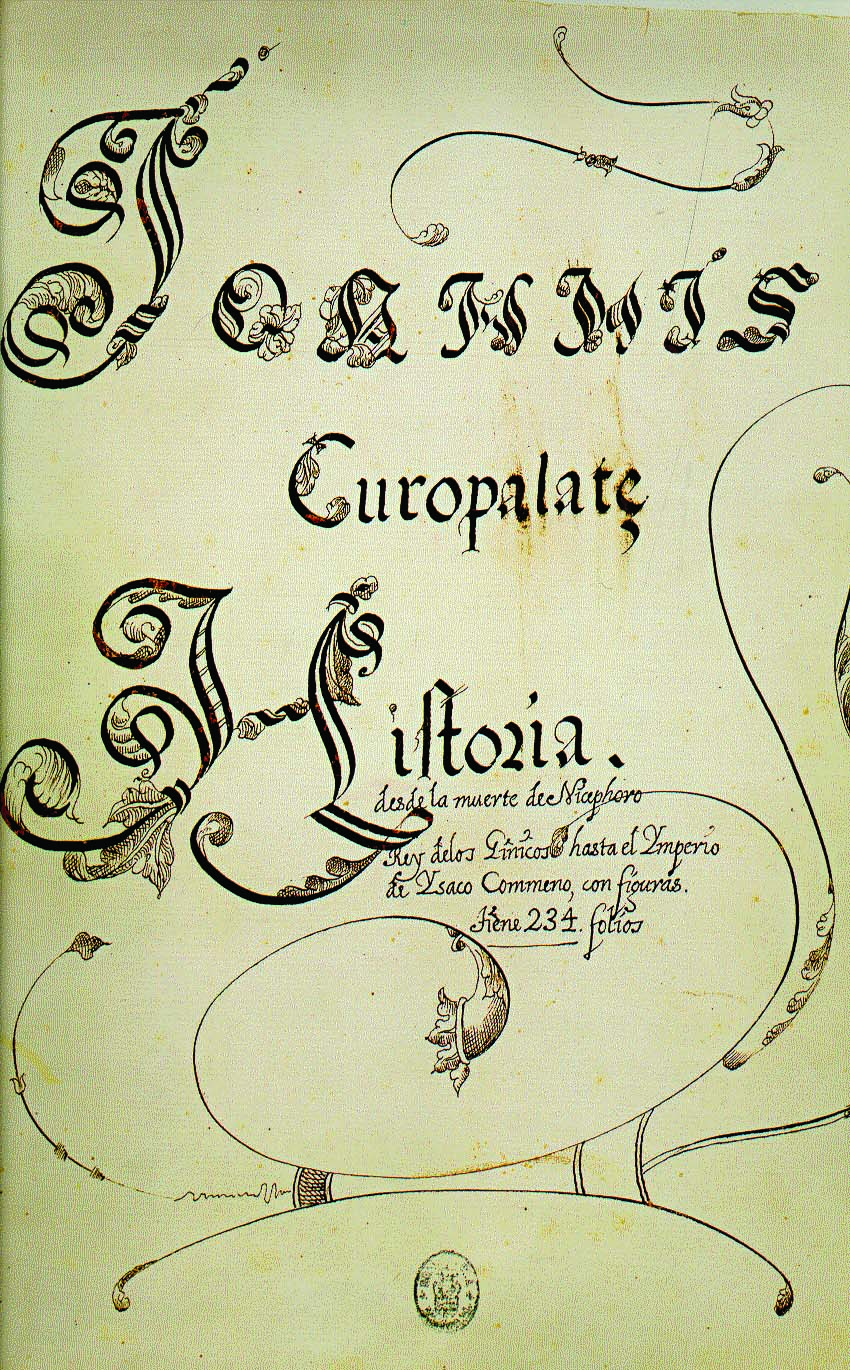 IOANNIS
Curopalatę
Historia.
desde la muerte de Nicephoro
Rey de los hasta el Ymperio
de Ysaco Commeno, con figuras.
tiene 234. folios